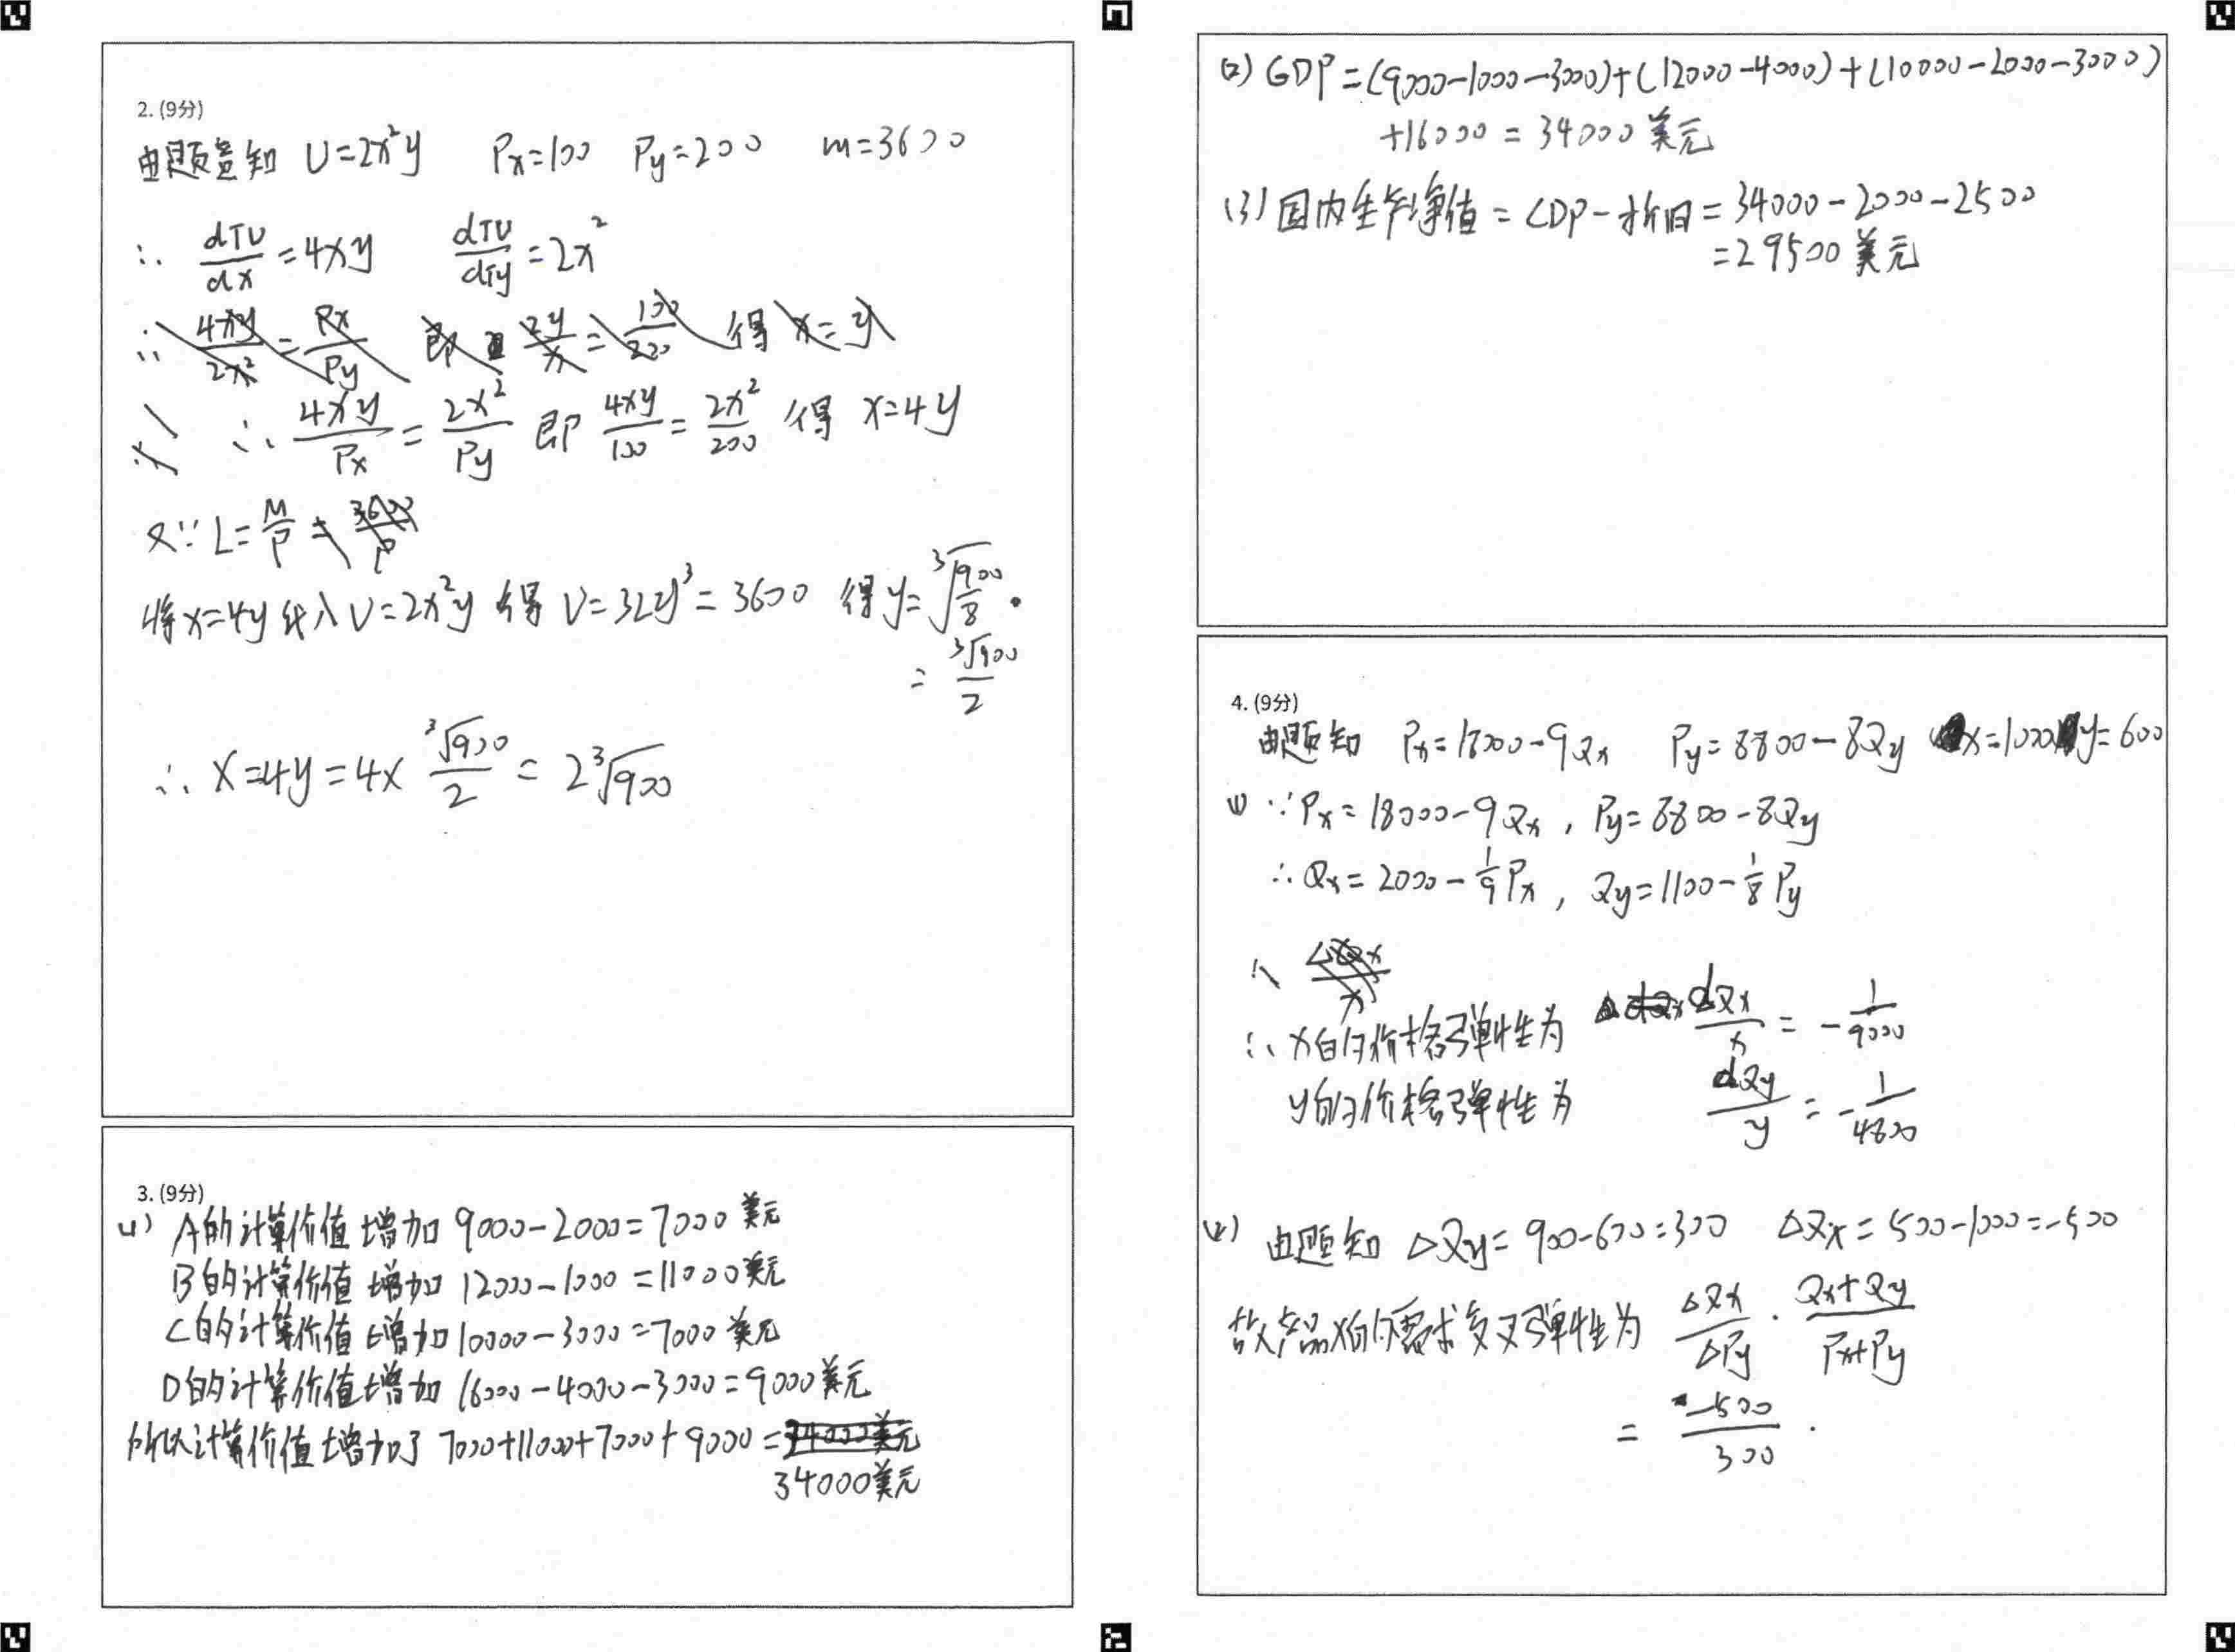 2. (9分)
由题意知 U=2x²y Px=100 Py=200 m=3600
∴ dTU/dx = 4xy dTU/dTy = 2x²
∴ 4xy/2x² = Px/Py 即 2y/x = 100/200 得 x=y
∴ 4xy/Px = 2x²/Py 即 4xy/100 = 2x²/200 得 x=4y
又∵ L = M/P = 3600/P
将x=4y代入U=2x²y 得 U=32y³=3600 得 y=³√(900/8)
= ³√900/2
∴ X=4y=4× ³√900/2 = 2³√900
3. (9分)
(1) A的计算价值增加 9000-2000=7000美元
B的计算价值增加 12000-1000=11000美元
C的计算价值增加 10000-3000=7000美元
D的计算价值增加 16000-4000-3000=9000美元
所以计算价值增加了 7000+11000+7000+9000=34000美元
34000美元
(2) GDP=(9000-1000-3000)+(12000-4000)+(10000-2000-3000)
+16000=34000美元
(3) 国内生产净值=GDP-折旧=34000-2000-2500
=29500美元
4. (9分)
由题知 Px=18000-9Qx Py=8800-8Qy x=1000 y=600
(1) ∵Px=18000-9Qx, Py=8800-8Qy
∴Qx=2000-1/9Px, Qy=1100-1/8Py
∴ ΔQx/x
∴ x的价格弹性为 dQx/x = -1/9000
y的价格弹性为 dQy/y = -1/4800
(2) 由题知 ΔQy=900-600=300 ΔQx=500-1000=-500
故产品X的需求交叉弹性为 ΔQx/ΔPy · Qx+Qy/Px+Py
= -500/300 ·